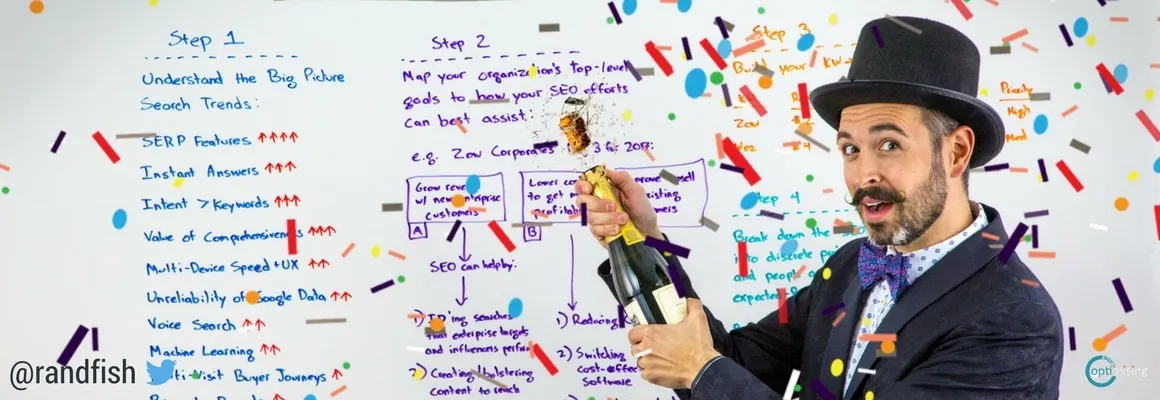 Step 1
Understand the Big Picture
Search Trends:
SERP Features ↑↑↑↑
Instant Answers ↑↑↑
Intent > Keywords ↑↑↑
Value of Comprehensiveness ↑↑↑
Multi-Device Speed + UX ↑↑
Unreliability of Google Data ↑↑
Voice Search ↑↑
Machine Learning ↑↑
Multi-Visit Buyer Journeys ↑
Step 2
Map your organization's top-level
goals to how your SEO efforts
can best assist:
e.g. Zow 3 for 2017:
Grow
w/ new enterprise
customers
A
Lower
to get
B
sell
existing
SEO can help by:
1) searches
that enterprise targets
and influencers
2) Creating/bolstering
content to reach
1) Reducing
2) Switching
cost-effec
Software
Step 3
Build your KW
Zow
Priority
High
Med
Step 4
Break down the SEO
into discrete
and people
@randfish
optimising